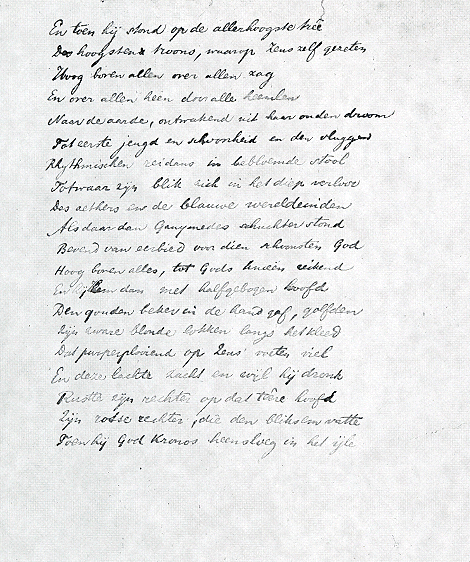 En toen hij stond op de allerhoogste treê
Des hoogsten troons, waarop Zeus zelf gezeten
Hoog boven allen over allen zag
En over allen heen door alle heemlen
Naar de aarde, ontwakend uit haar ouden droom
Tot eerste jeugd en schoonheid en den vluggen
Rhythmischen reidans in bebloemde stool
Totwaar zijn blik zich in het diep verloor
Des aethers en de blauwe wereldeinden
Als daar dan Ganymedes schuchter stond
Bevend van eerbied voor dien schoonsten God
Hoog boven alles, tot Gods knieën reikend
En hem dan met halfgebogen hoofd
Den gouden beker in de hand gaf, golfden
Zijn zware blonde lokken langs het kleed
Dat purperplooiend op Zeus' voeten viel
En deze lachte zacht en wijl hij dronk
Rustte zijn rechter op dat teêre hoofd
Zijn rotse rechter, die den bliksem vatte
Toen hij God Kronos heensloeg in het ijle